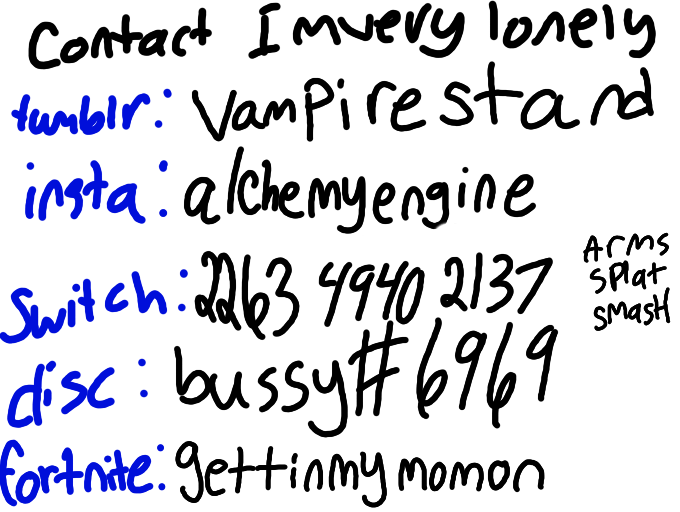 Contact Imvery lonely
tumblr: Vampirestand
insta: alchemyengine
Switch: 2263 4940 2137
Arms
splat
smash
disc: bussy#6969
fortnite: gettinmymomon